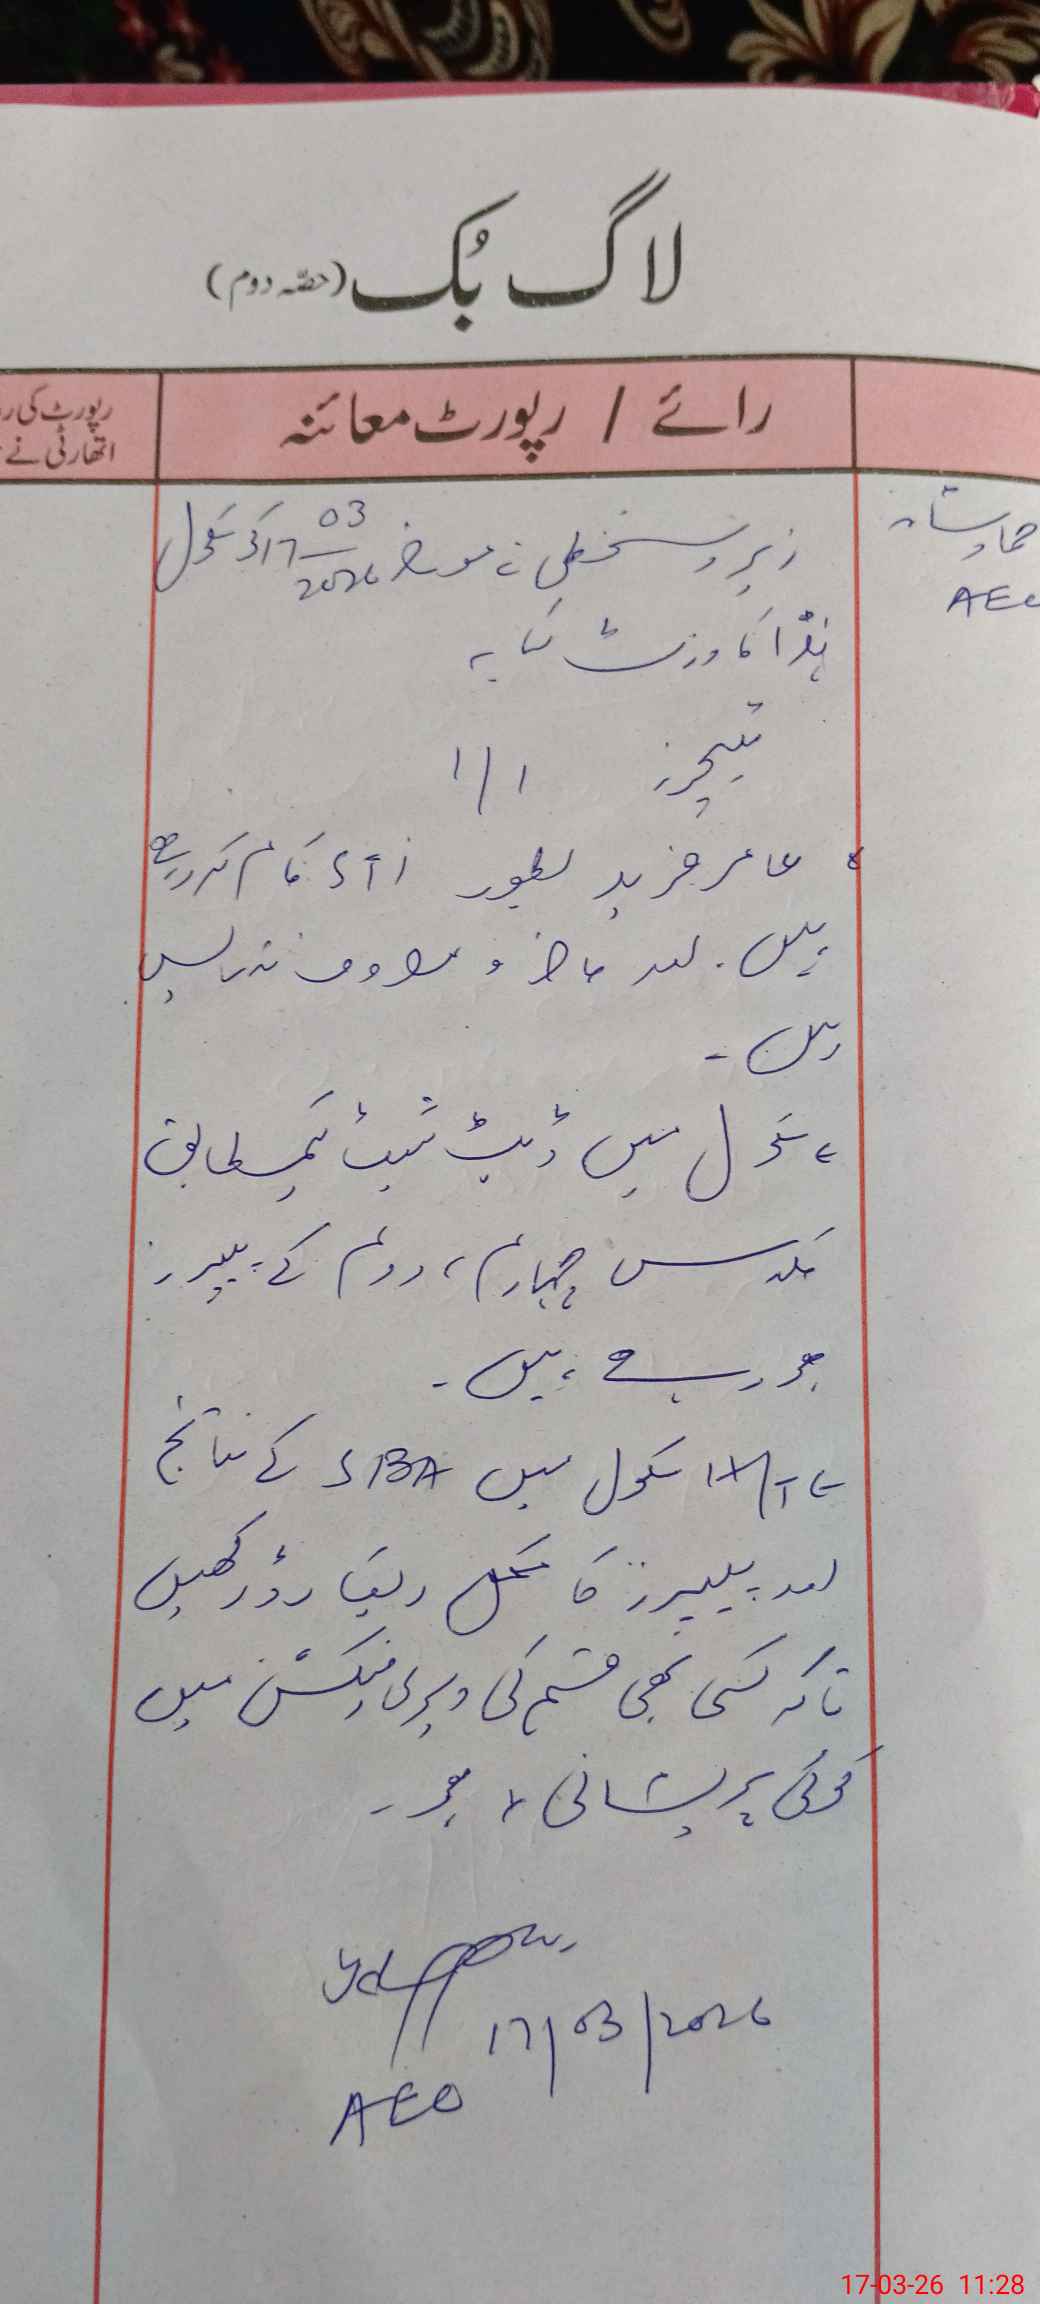 لاگ بُک (حصّہ دوم)
رائے / رپورٹ معائنہ
رپورٹ کی
اتھارٹی نے
AEO
زیر دستخطی نے مورخہ 17/03/2026 کو سکول
ہٰذا کا وزٹ کیا۔
ٹیچرز 1/1
عامر فرید بطور کام کر رہے
ہیں۔ اور حاضر و مصروف تدریس
ہیں۔
سکول میں ڈیٹ شیٹ کیمطابق
کلاس چہارم، دوم کے پیپرز
ہو رہے ہیں۔
سکول میں SBA کے نتائج
اور پیپرز کا مکمل ریکارڈ رکھیں
تاکہ کسی بھی قسم کی ویریفیکشن میں
کوئی پریشانی نہ ہو۔
17/03/2026
AEO
17-03-26 11:28